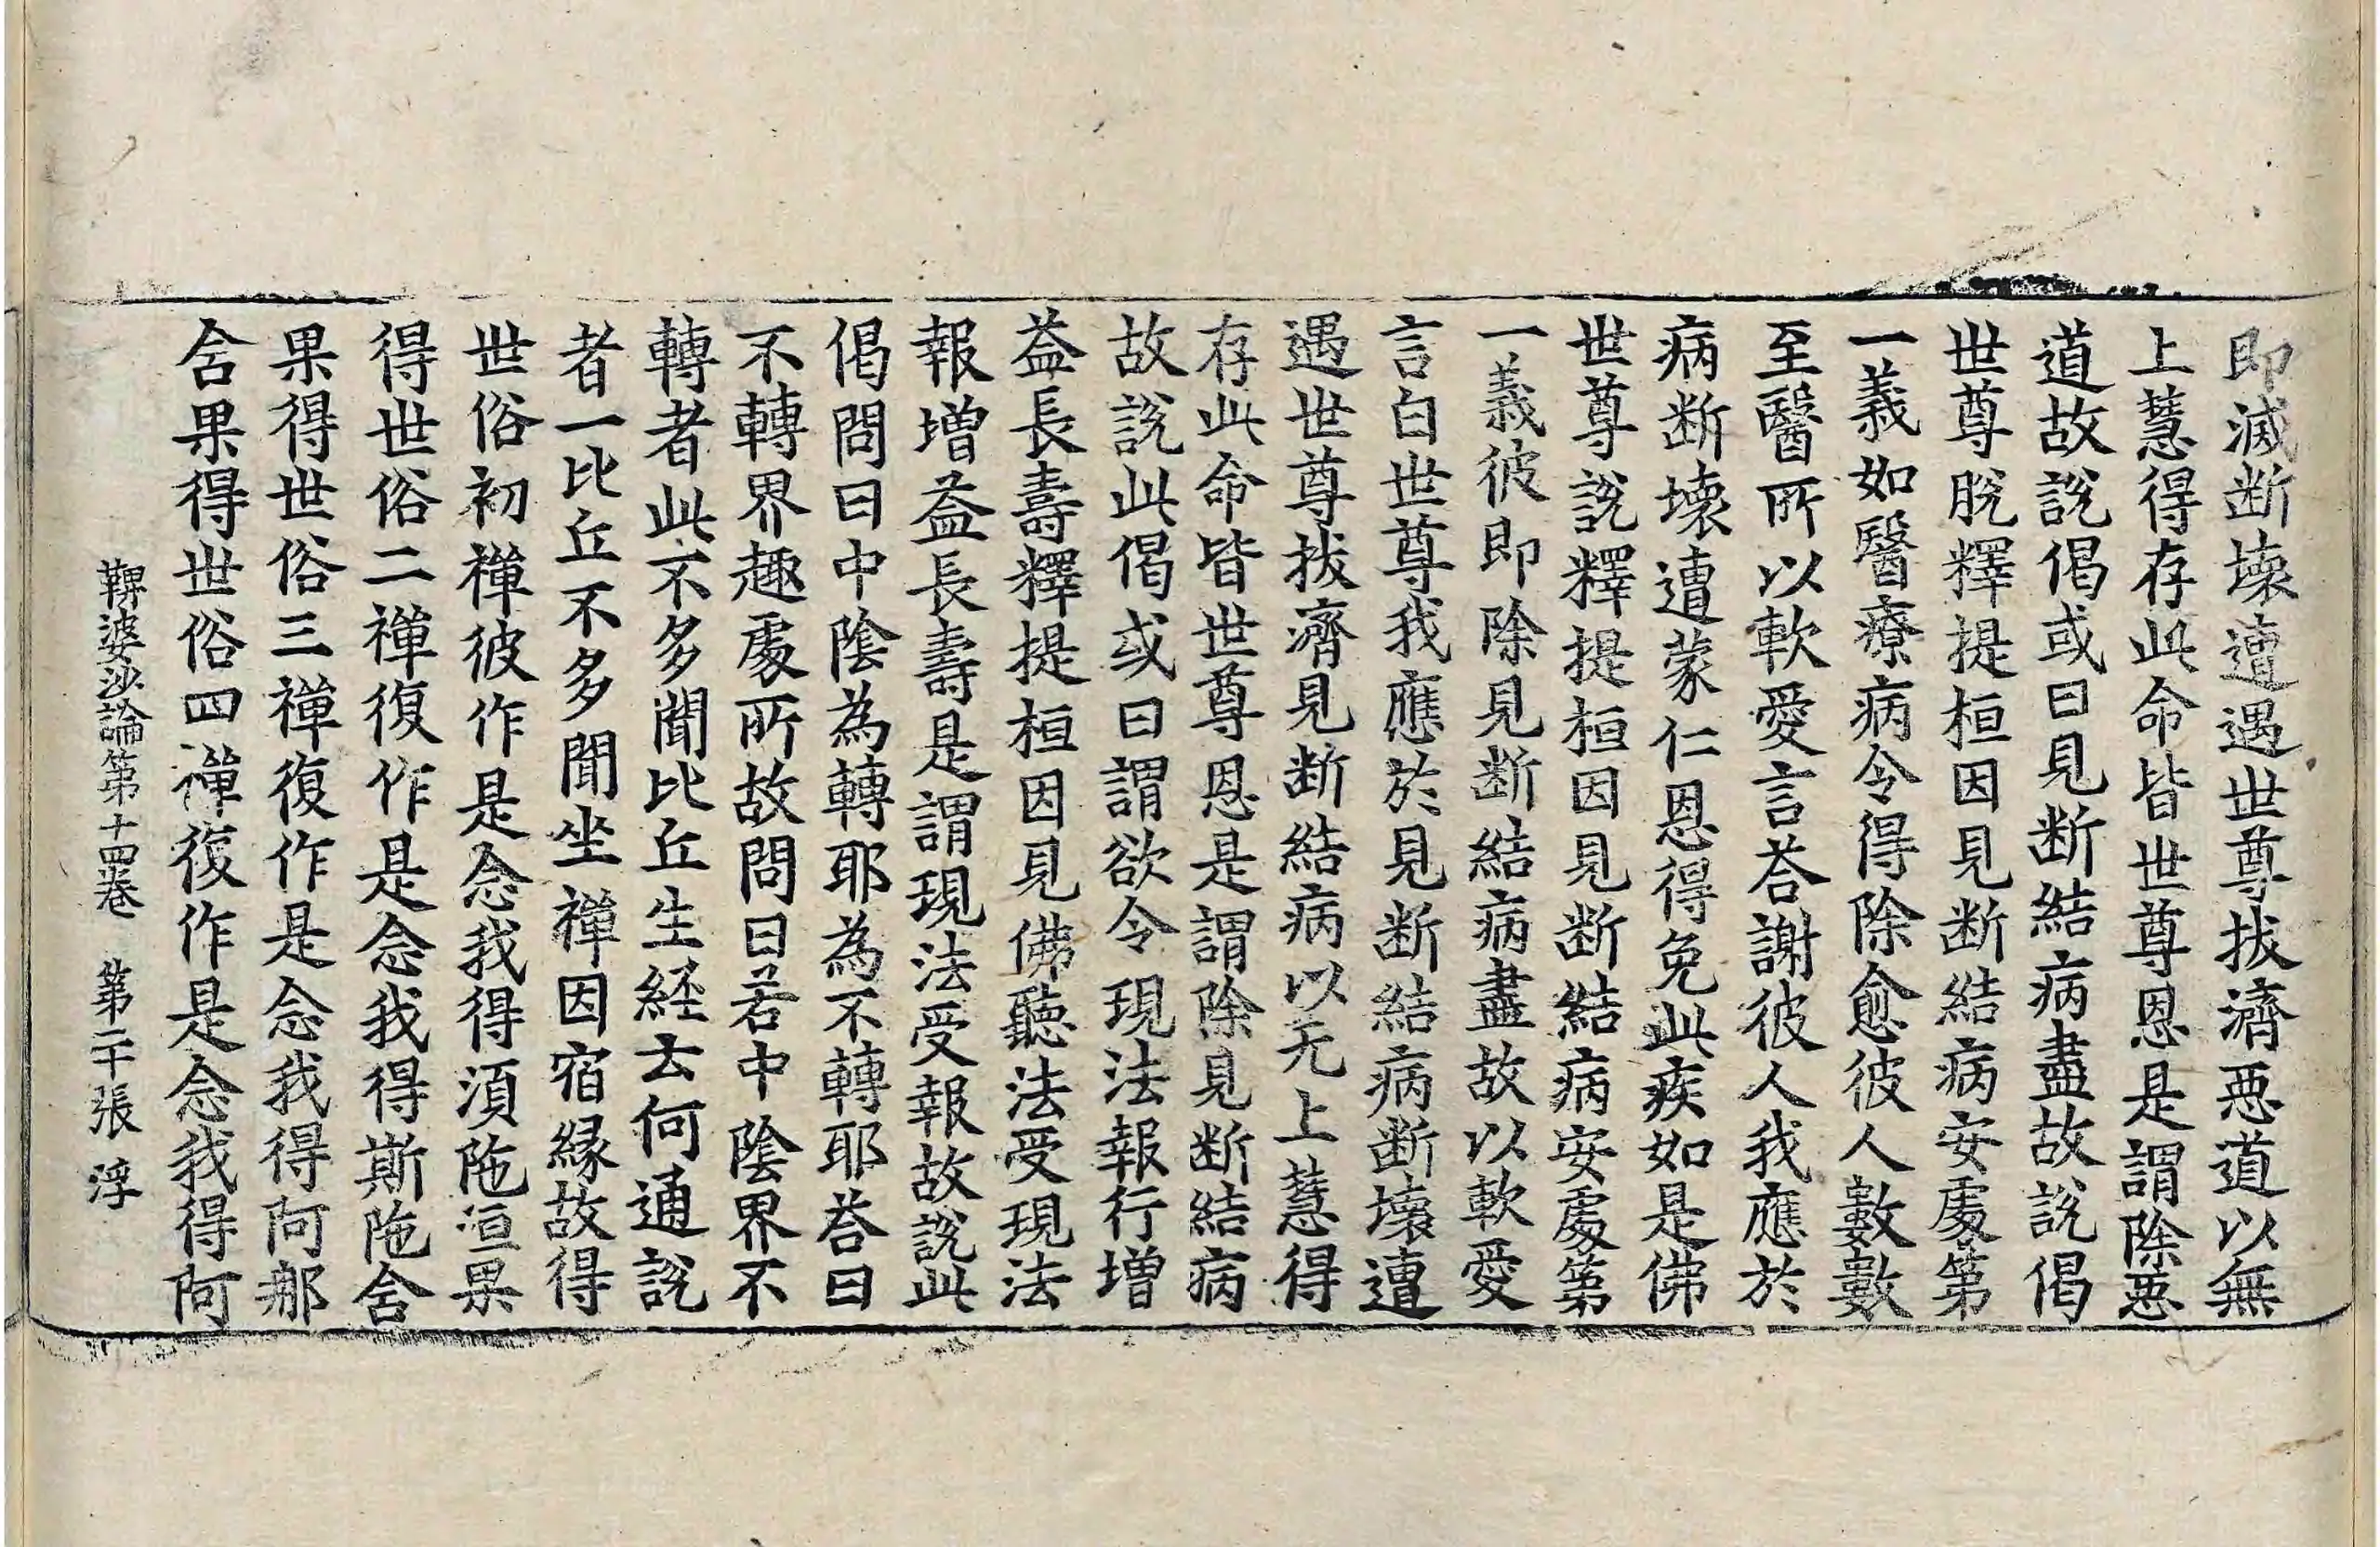 即滅断壞遭遇世尊拔濟惡道以無
上慧得存此命皆世尊恩是謂除惡
道故說偈或曰見断結病盡故說偈
世尊脫釋提桓因見断結病安處第
一義如醫療病令得除愈彼人數數
至醫所以軟愛言荅謝彼人我應於
病断壞遭蒙仁恩得免此疾如是佛
世尊說釋提桓因見断結病安處第
一義彼即除見断結病盡故以軟愛
言白世尊我應於見断結病断壞遭
遇世尊拔濟見断結病以无上慧得
存此命皆世尊恩是謂除見断結病
故說此偈或曰謂欲令現法報行增
益長壽釋提桓因見佛聽法受現法
報增益長壽是謂現法受報故說此
偈問曰中陰為轉耶為不轉耶荅曰
不轉界趣處所故問曰若中陰界不
轉者此不多聞比丘生経云何通說
者一比丘不多聞坐禪因宿緣故得
世俗初禪彼作是念我得須陁洹果
得世俗二禪復作是念我得斯陁含
果得世俗三禪復作是念我得阿那
含果得世俗四禪復作是念我得阿
鞞婆沙論第十四卷　第二十張　浮